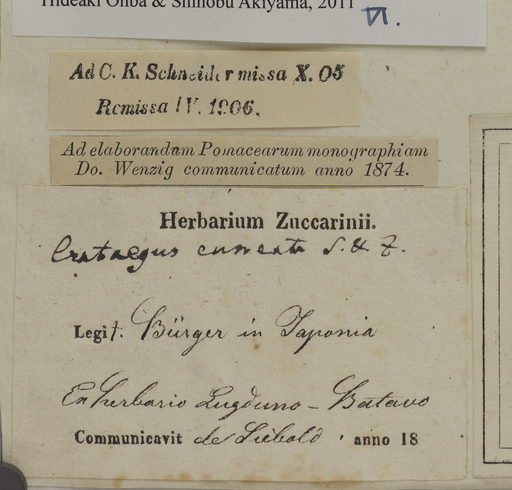 Hideaki Ohba & Shinobu Akiyama, 2011 VI.
Ad C. K. Schneider missa X. 05
Remissa IV. 1906.
Ad elaborandam Pomacearum monographiam
Do. Wenzig communicatum anno 1874.
Herbarium Zuccarinii.
Crataegus cuneata S. & Z.
Legit. Bürger in Japonia
Ex herbario Lugduno - Batavo
Communicavit de Siebold, anno 18